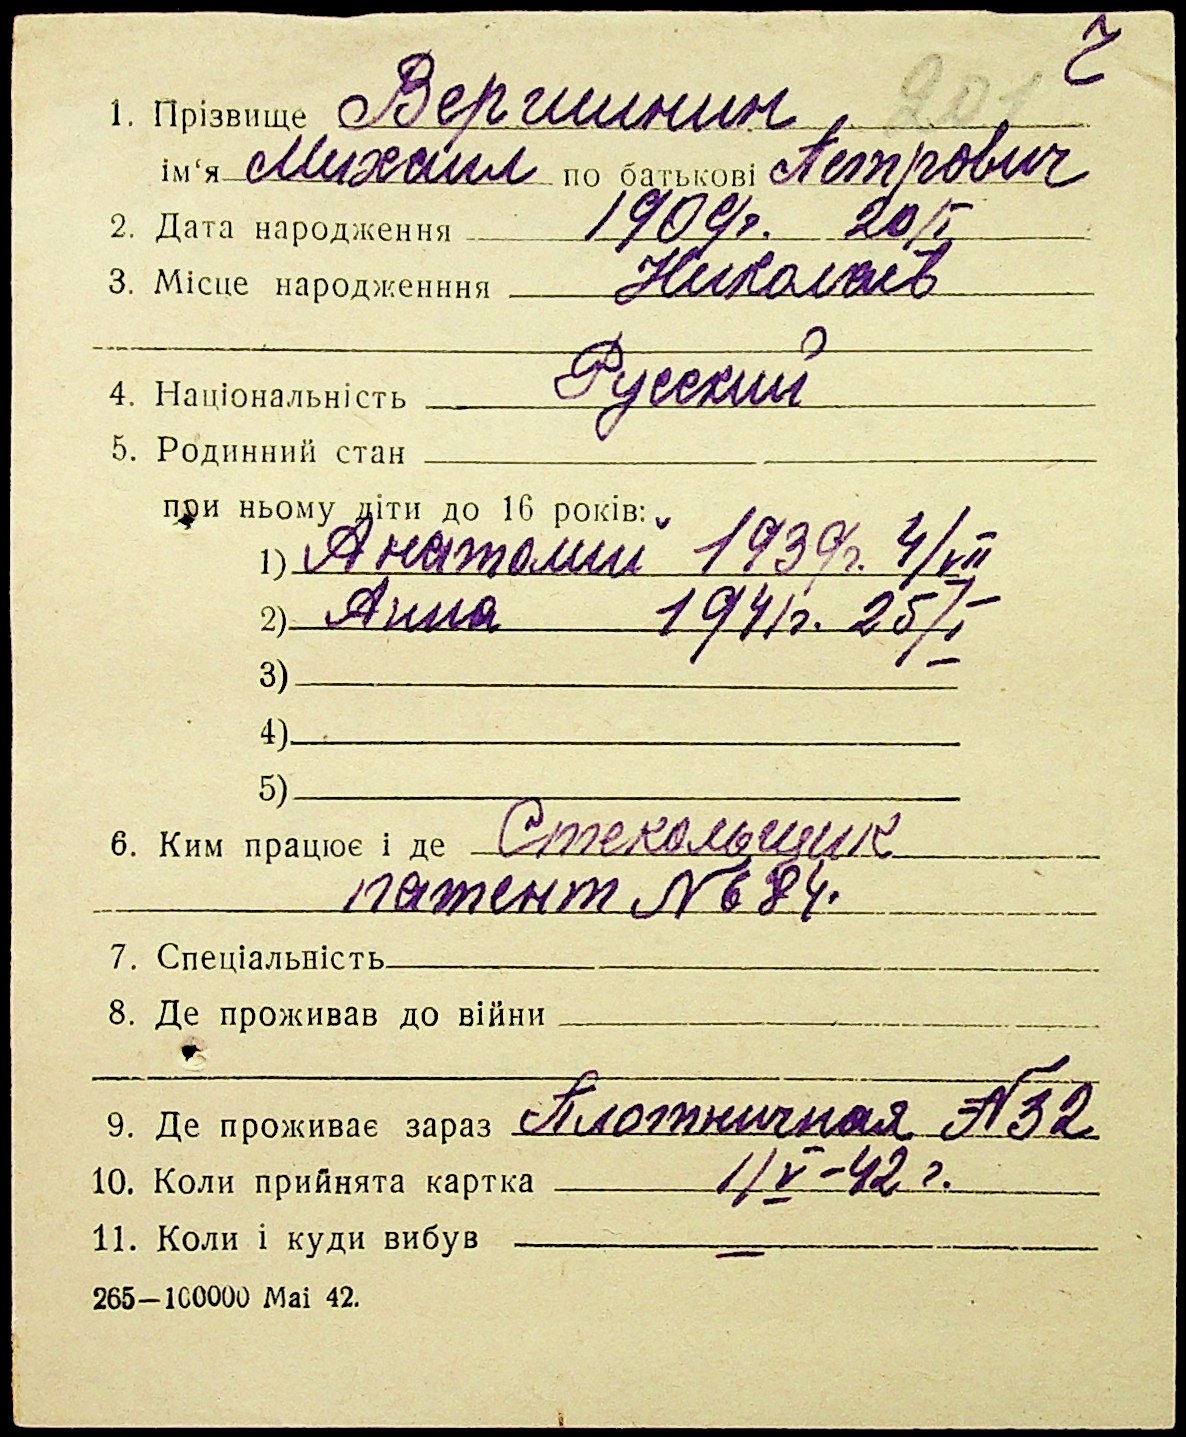 201
1. Прізвище Вершинин
ім‘я Михаил по батькові Петрович
2. Дата народження 1909г. 20/I
3. Місце народженння Николаев
4. Національність Русский
5. Родинний стан
при ньому діти до 16 років:
1) Анатолий 1939г. 4/VII
2) Анна 1941г. 25/I
3)
4)
5)
6. Ким працює і де Стекольщик
патент N 684.
7. Спеціальність
8. Де проживав до війни
9. Де проживає зараз Плотничная N32
10. Коли прийнята картка 1/V-42 г.
11. Коли і куди вибув —
265—100000 Маі 42.